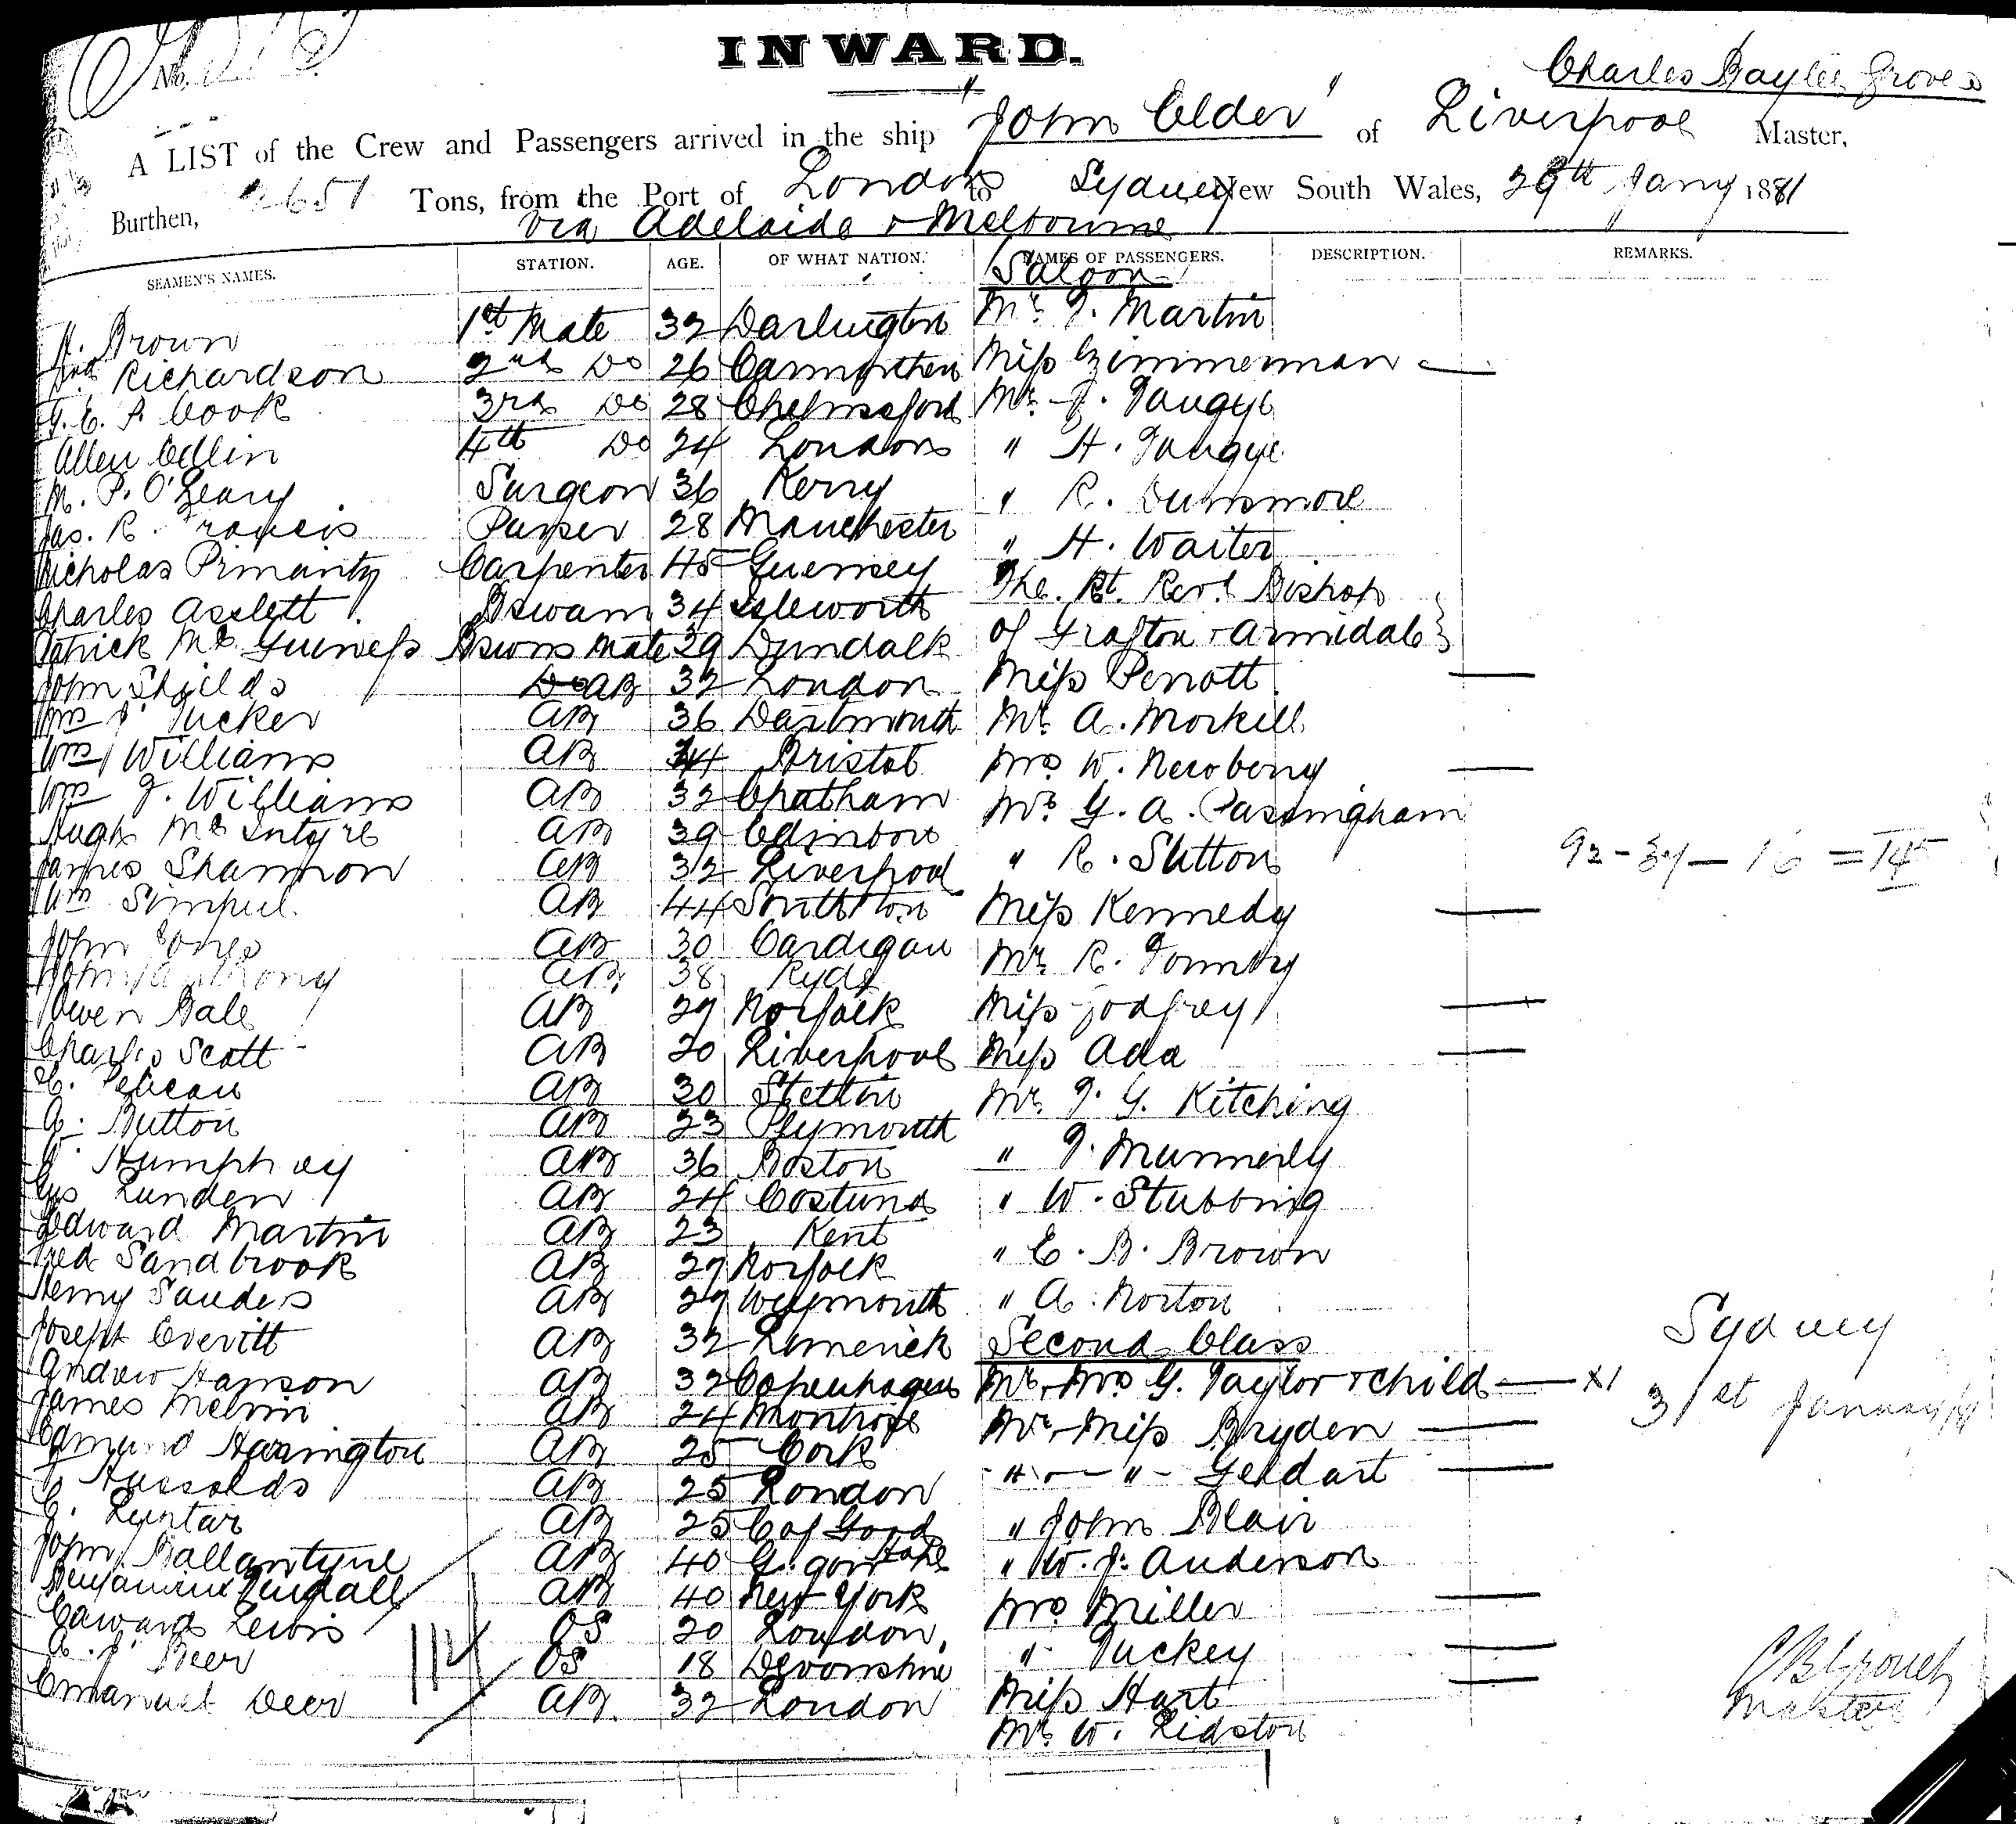 No.
INWARD.
Charles Bayle Groves
A LIST of the Crew and Passengers arrived in the ship "John Elder" of Liverpool Master,
Burthen, 2651 Tons, from the Port of London to Sydney New South Wales, 29th Jany 1881
via Adelaide & Melbourne
SEAMEN'S NAMES. STATION. AGE. OF WHAT NATION. NAMES OF PASSENGERS. DESCRIPTION. REMARKS.
Saloon
H. Brown 1st Mate 32 Darlington Mr. J. Martin
Richardson 2nd Do 26 Carmarthen Miss Zimmerman
Cook 3rd Do 28 Chelmsford Mr. J. Tangye
Allen Edlin 4th Do 24 London " H. Tangye
M. P. O'Leary Surgeon 36 Kerry " R. Dunsmore
Jas. R. Francis Purser 28 Manchester " H. Waiter
Nicholas Carpenter 45 Guernsey The Rt. Revd. Bishop
Charles Asslett Bswain 34 Isleworth of Grafton & Armidale }
Patrick Mc Guiness Bswns Mate 29 Dundalk
John Shields Do AB 32 London Miss Perrott
Wm J. Tucker AB 36 Dartmouth Mr. A. Morkill
Wm Williams AB 44 Bristol Mrs W. Newbery
Wm J. Williams AB 32 Chatham Mr. G. A. Passingham
Hugh McIntyre AB 39 Edinboro
James Shannon AB 32 Liverpool " R. Sutton 92 - 37 - 16 = 145
Wm AB 44 Southton Miss Kennedy
John Jones AB 30 Cardigan Mr. R. Formby
John AB 38 Ryde
Owen Bale AB 27 Norfolk Miss Godfrey
Charles Scott AB 20 Liverpool Miss Ada
AB 30 Stettin Mr. J. G. Kitching
A. Button AB 23 Plymouth
Humphrey AB 36 Boston " J. Munnerly
Gus Lunden AB 24 " W. Stubbing
Edward Martin AB 23 Kent
Fred Sandbrook AB 27 Norfolk " E. B. Brown
Henry Sanders AB 27 Weymouth " A. Norton
Joseph Everitt AB 32 Limerick Second Class Sydney
Andrew Hanson AB 32 Copenhagen Mr. & Mrs G. Taylor & child X1
James Melvin AB 24 Montrose Mr. & Miss Bryden 31st January/81
Edmund Harington AB 25 Cork
AB 25 London " & " Geldart
AB 25 C of Good Hope " John Blair
John Ballantyne AB 40 " W. J. Anderson
Benjamin AB 40 New York Mrs Miller
Edward Lewis OS 20 London
114 OS 18 Devonshire " Tuckey
Emanuel Deer AB. 32 London Miss Hart
Mr. W. Lidston
C B Groves
Master